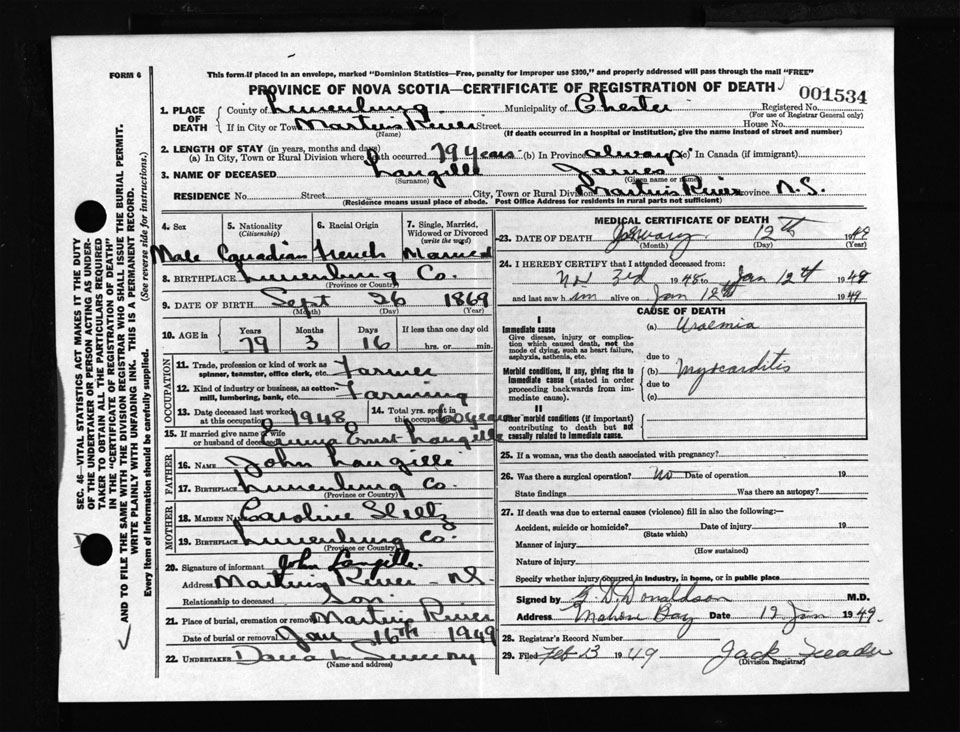 FORM 6
This form if placed in an envelope, marked "Dominion Statistics—Free, penalty for improper use $300," and properly addressed will pass through the mail "FREE"
PROVINCE OF NOVA SCOTIA—CERTIFICATE OF REGISTRATION OF DEATH 001534
1. PLACE OF DEATH { County of Lunenburg Municipality of Chester Registered No.
(For use of Registrar General only)
If in City or Town Martins River Street House No.
(Name) (If death occurred in a hospital or institution, give the name instead of street and number)
2. LENGTH OF STAY (in years, months and days)
(a) In City, Town or Rural Division where death occurred 79 years (b) In Province always (c) In Canada (if immigrant)
3. NAME OF DECEASED Langille James
(Surname) (Given name or names)
RESIDENCE No. Street City, Town or Rural Division Martins River Province N.S.
(Residence means usual place of abode. Post Office Address for residents in rural parts not sufficient)
4. Sex 5. Nationality (Citizenship) 6. Racial Origin 7. Single, Married, Widowed or Divorced (write the word)
Male Canadian French Married
8. BIRTHPLACE Lunenburg Co.
(Province or Country)
9. DATE OF BIRTH Sept 26 1869
(Month) (Day) (Year)
10. AGE in { Years Months Days If less than one day old
79 3 16 hrs. or min.
OCCUPATION
11. Trade, profession or kind of work as spinner, teamster, office clerk, etc. Farmer
12. Kind of industry or business, as cotton-mill, lumbering, bank, etc. Farming
13. Date deceased last worked at this occupation 1948 14. Total yrs. spent in this occupation 60 years
15. If married give name of wife or husband of deceased Emma Ernst Langille
FATHER
16. NAME John Langille
17. BIRTHPLACE Lunenburg Co.
(Province or Country)
MOTHER
18. MAIDEN NAME Caroline
19. BIRTHPLACE Lunenburg Co.
(Province or Country)
20. Signature of informant John Langille
Address Martins River - N.S.
Relationship to deceased Son
21. Place of burial, cremation or removal Martins River
Date of burial or removal Jan 16th 1949
22. UNDERTAKER
(Name and address)
MEDICAL CERTIFICATE OF DEATH
23. DATE OF DEATH January 12th 1949
(Month) (Day) (Year)
24. I HEREBY CERTIFY that I attended deceased from:
Nov 3rd 1948 to Jan 12th 1949
and last saw him alive on Jan 12th 1949
CAUSE OF DEATH
I
Immediate cause (a) Uraemia
Give disease, injury or complication which caused death, not the mode of dying, such as heart failure, asphyxia, asthenia, etc.
due to
Morbid conditions, if any, giving rise to immediate cause (stated in order proceeding backwards from immediate cause). (b) Myocarditis
due to
(c)
II
Other morbid conditions (if important) contributing to death but not causally related to immediate cause.
25. If a woman, was the death associated with pregnancy?
26. Was there a surgical operation? No Date of operation 19
State findings Was there an autopsy?
27. If death was due to external causes (violence) fill in also the following:—
Accident, suicide or homicide? Date of injury 19
(State which)
Manner of injury
(How sustained)
Nature of injury
Specify whether injury occurred in industry, in home, or in public place
Signed by Donaldson M.D.
Address Mahone Bay Date 12 Jan 1949.
28. Registrar's Record Number
29. Filed Feb 3 1949 Jack
(Division Registrar)
SEC. 46—VITAL STATISTICS ACT MAKES IT THE DUTY
OF THE UNDERTAKER OR PERSON ACTING AS UNDER-
TAKER TO OBTAIN ALL THE PARTICULARS REQUIRED
IN THE "CERTIFICATE OF REGISTRATION OF DEATH"
AND TO FILE THE SAME WITH THE DIVISION REGISTRAR WHO SHALL ISSUE THE BURIAL PERMIT.
WRITE PLAINLY WITH UNFADING INK. THIS IS A PERMANENT RECORD.
Every item of Information should be carefully supplied. (See reverse side for instructions.)